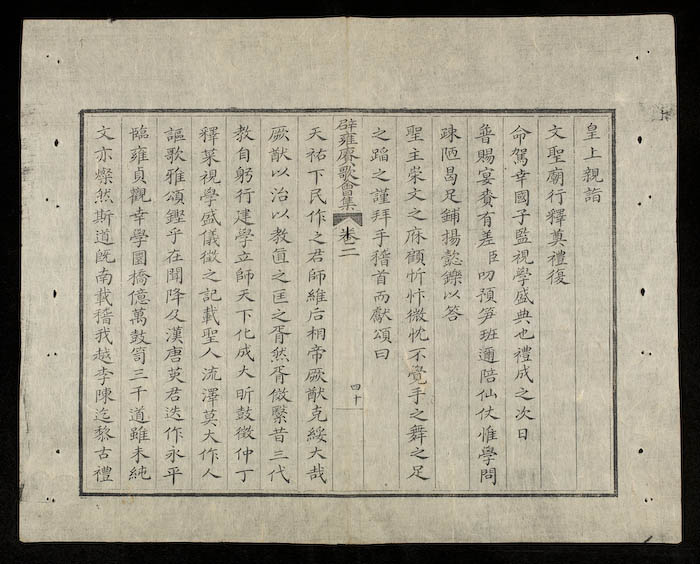 皇上親詣
文聖廟行釋奠禮復
命駕幸國子監視學盛典也禮成之次日
普賜宴賚有差臣叨預笋班邇陪仙仗惟學問
疎陋曷足鋪揚懿鑠以答
聖主崇文之庥顧忻忭微忱不覺手之舞之足
之蹈之謹拜手稽首而獻頌曰
辟雍賡歌會集 卷二
四十
天祐下民作之君師維后相帝厥猷克綏大哉
厥猷以治以教直之匡之胥然胥傚繄昔三代
教自躬行建學立師天下化成大昕鼓徵仲丁
釋菜視學盛儀徵之記載聖人流澤莫大作人
謳歌雅頌鏗乎在聞降及漢唐英君迭作永平
臨雍貞觀幸學圜橋億萬鼓篋三千道雖未純
文亦燦然斯道旣南載稽我越李陳迄黎古禮